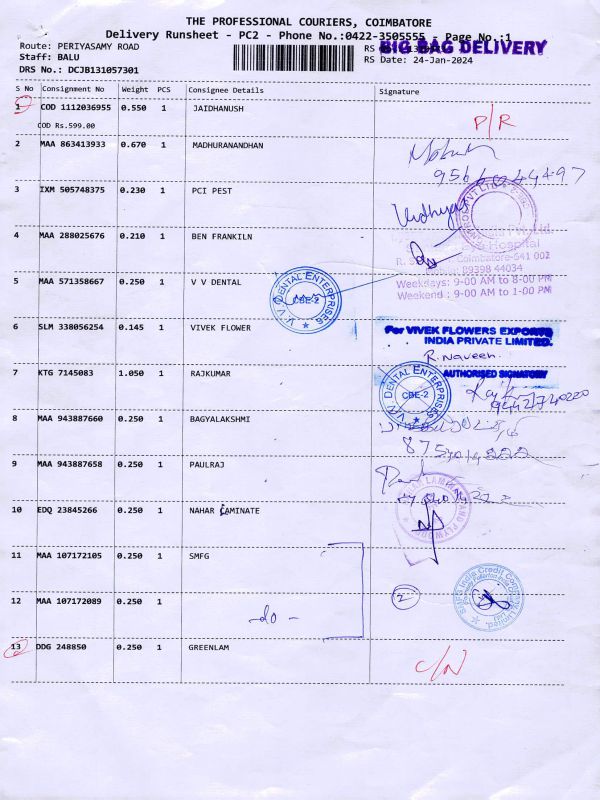 THE PROFESSIONAL COURIERS, COIMBATORE
Delivery Runsheet - PC2 - Phone No.:0422-3505555 - Page No.:1
BIG BAG DELIVERY
Route: PERIYASAMY ROAD
RS
Staff: BALU
RS Date: 24-Jan-2024
DRS No.: DCJB131057301
S No Consignment No Weight PCS Consignee Details Signature
1 COD 1112036955 0.550 1 JAIDHANUSH P/R
COD Rs.599.00
2 MAA 863413933 0.670 1 MADHURANANDHAN
3 IXM 505748375 0.230 1 PCI PEST
4 MAA 288025676 0.210 1 BEN FRANKILN
Hospital
Coimbatore-641 002
89398 44034
Weekdays: 9-00 AM to 8-00 PM
Weekend : 9-00 AM to 1-00 PM
5 MAA 571358667 0.250 1 V V DENTAL
V.V. DENTAL ENTERPRISES
CBE-2
6 SLM 338056254 0.145 1 VIVEK FLOWER
For VIVEK FLOWERS EXPORTS
INDIA PRIVATE LIMITED.
R. Naveen.
AUTHORISED SIGNATORY
7 KTG 7145083 1.050 1 RAJKUMAR
V.V. DENTAL ENTERPRISES
CBE-2
8 MAA 943887660 0.250 1 BAGYALAKSHMI
9 MAA 943887658 0.250 1 PAULRAJ
10 EDQ 23845266 0.250 1 NAHAR LAMINATE
11 MAA 107172105 0.250 1 SMFG
SMFG India Credit Company Limited.
12 MAA 107172089 0.250 1 -do- 2
13 DDG 248850 0.250 1 GREENLAM C/N